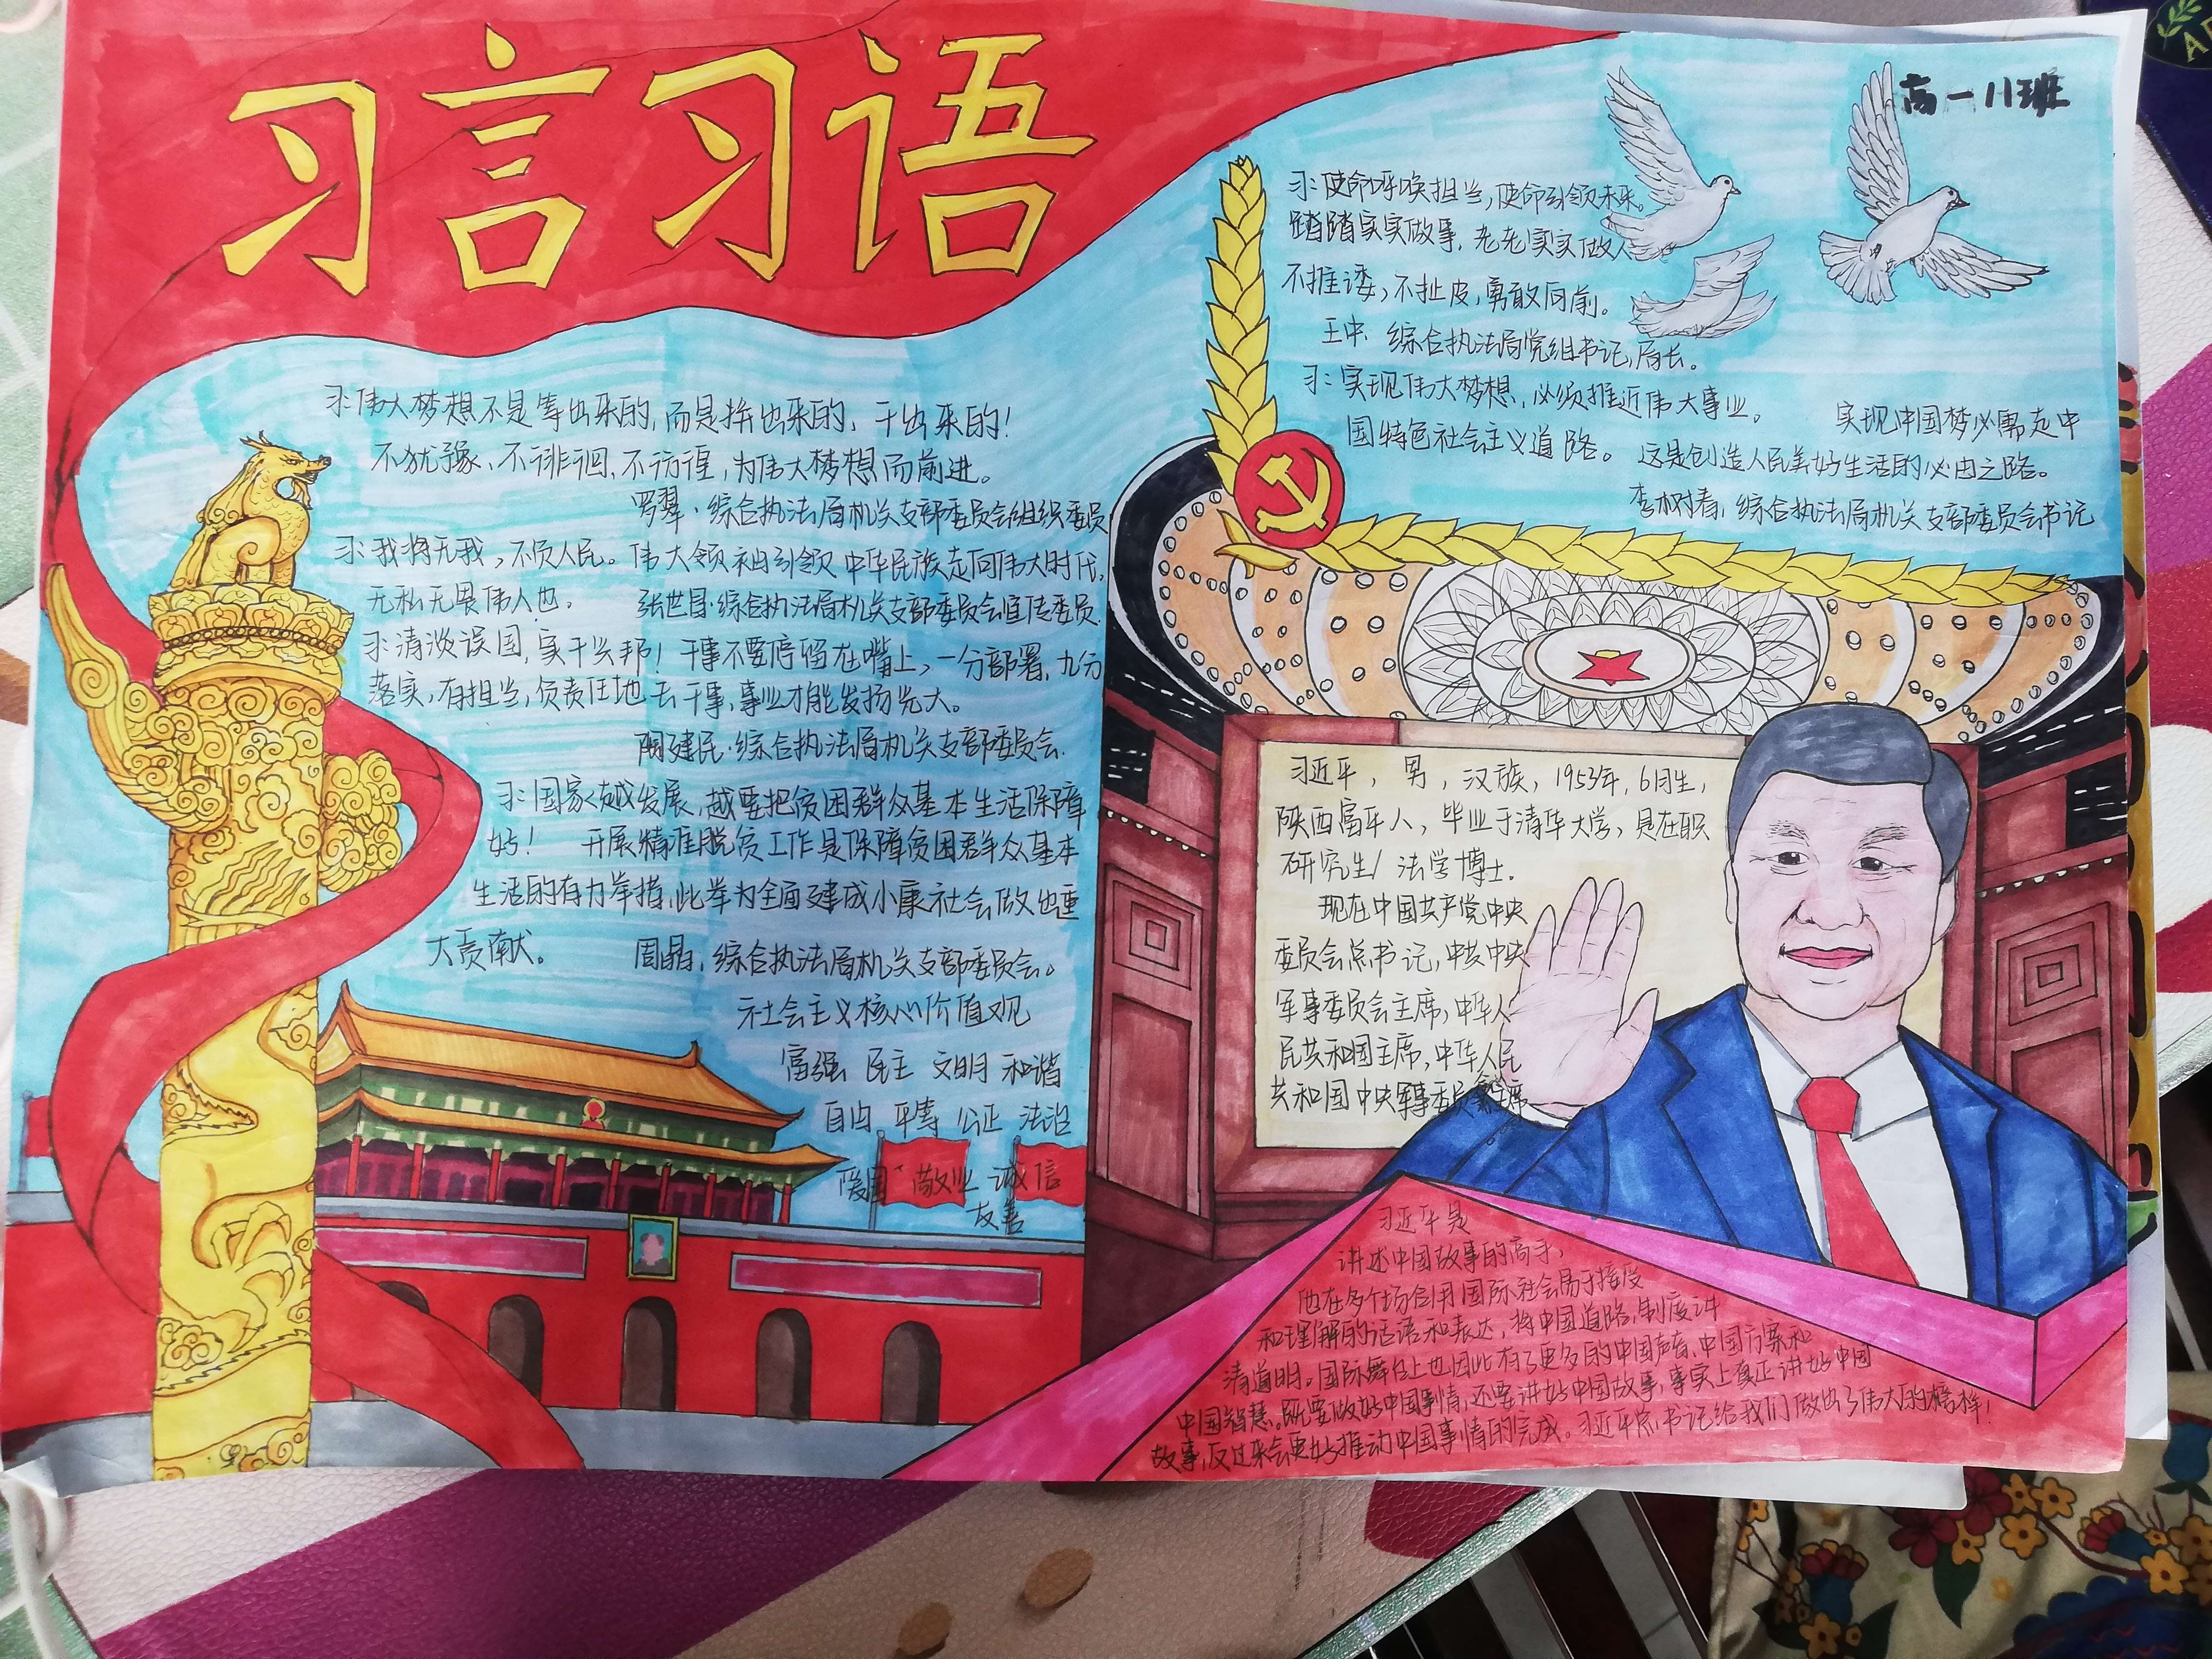 习言习语
高一11班
习:伟大梦想不是等出来的,而是拼出来的,干出来的!
不犹豫、不徘徊、不彷徨,为伟大梦想而前进。
罗翠·综合执法局机关支部委员会组织委员
习:我将无我,不负人民。伟大领袖引领中华民族走向伟大时代,
无私无畏伟人也。 张世昌·综合执法局机关支部委员会宣传委员.
习:清淡误国,实干兴邦!干事不要停留在嘴上,一分部署,九分
落实,有担当,负责任地去干事,事业才能发扬光大。
建民·综合执法局机关支部委员会.
习:国家越发展,越要把贫困群众基本生活保障
好! 开展精准脱贫工作是保障贫困群众基本
生活的有力举措,此举为全面建成小康社会做出重
大贡献。 周晶,综合执法局机关支部委员会。
社会主义核心价值观
富强 民主 文明 和谐
自由 平等 公正 法治
爱国 敬业 诚信
友善
习:使命呼唤担当,使命引领未来。
踏踏实实做事,老老实实做人
不推诿,不扯皮,勇敢向前。
王中·综合执法局党组书记,局长。
习:实现伟大梦想,必须推近伟大事业。 实现中国梦必需走中
国特色社会主义道路。 这是创造人民美好生活的必由之路。
李树春,综合执法局机关支部委员会书记
习近平,男,汉族,1953年,6月生,
陕西富平人,毕业于清华大学,是在职
研究生/法学博士.
现在中国共产党中央
委员会总书记,中共中央
军事委员会主席,中华人
民共和国主席,中华人民
共和国中央军事委员会主席
习近平是
讲述中国故事的高手,
他在多个场合用国际社会易于接受
和理解的话语和表达,将中国道路,制度讲
清道明。国际舞台上也因此有了更多的中国声音、中国方案和
中国智慧。既要做好中国事情,还要讲好中国故事,事实上真正讲好中国
故事,反过来会更好推动中国事情的完成。习近平总书记给我们做出了伟大的榜样!